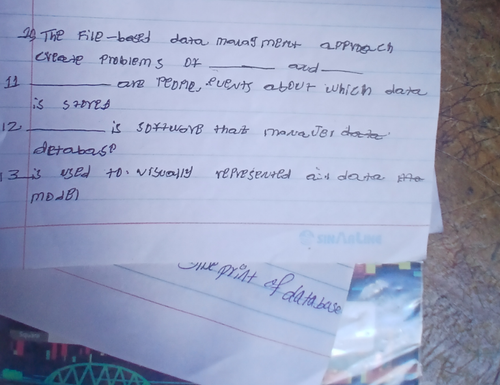 10 The File-based data management approach
create problems of _______ and _____
11 _________ are people, events about which data
is stored
12 _________ is software that manages data
database
13 is used to visually represented a data
model
print of database